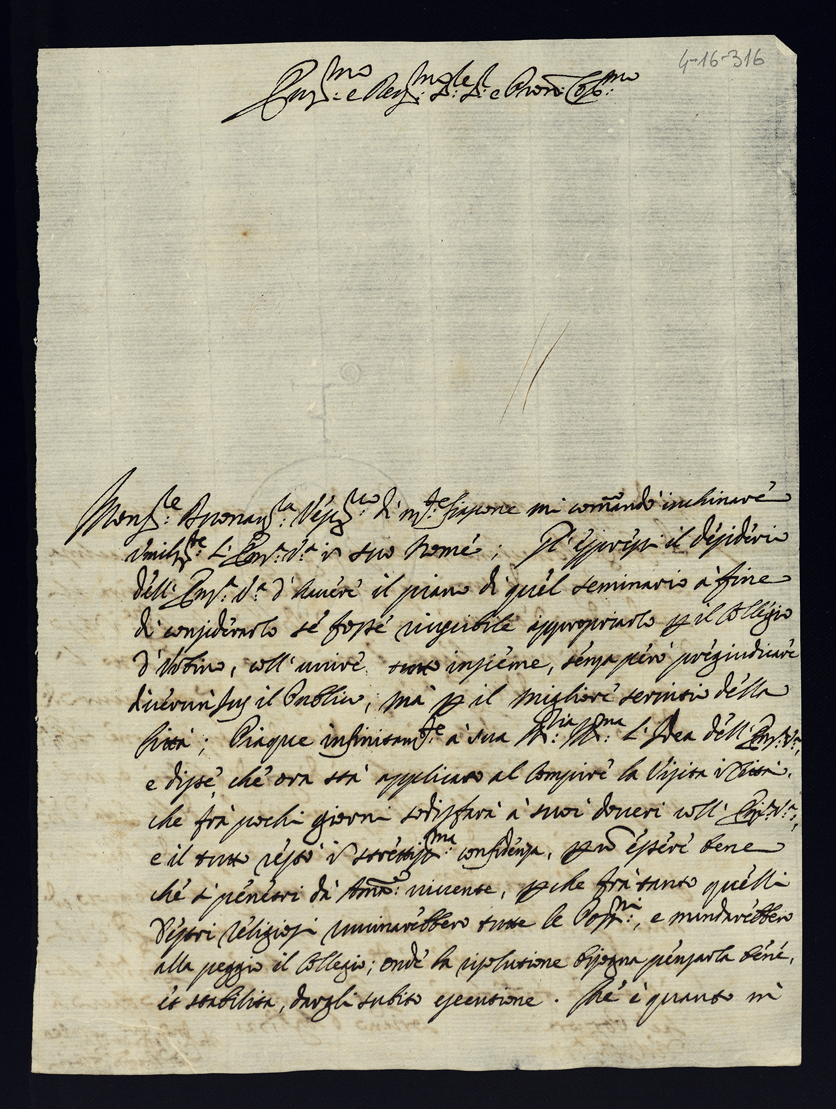 4-16-316
Em̃.mo e Rev.mo Sig.re e Pron̄ Col.mo
Mons.re Buonav.ra di m.te Giapone mi comandò inchinare
umilm.te l'Em.a V.a in suo nome; Gl'espressi il desiderio
dell'Em.a V.a d'havere il piano di quel seminario à fine
di considerarlo se fosse riuscibile appropriarlo p il Collegio
d'Urbino, coll'unire tutto insieme, senza però pregiudicare
il Publico, mà p il migliore servitio della
Città; Piaque infinitam.te à sua l'Idea dell'Em.a V.a,
e disse che ora stà applicato al Compire la Visita in Città,
che frà pochi giorni sodisfarà à suoi doveri coll'Em.a V.a,
e il tutto restò in strettiss.ma confidenza, essere bene
che si penetri dà vivente, p che frà tanto quelli
religiosi ruinarebbero tutte le, e mandarebbero
alla peggio il Collegio; onde la risolutione bisogna pensarla bene,
et stabilita, dargli subito esecutione. Che è quanto mi